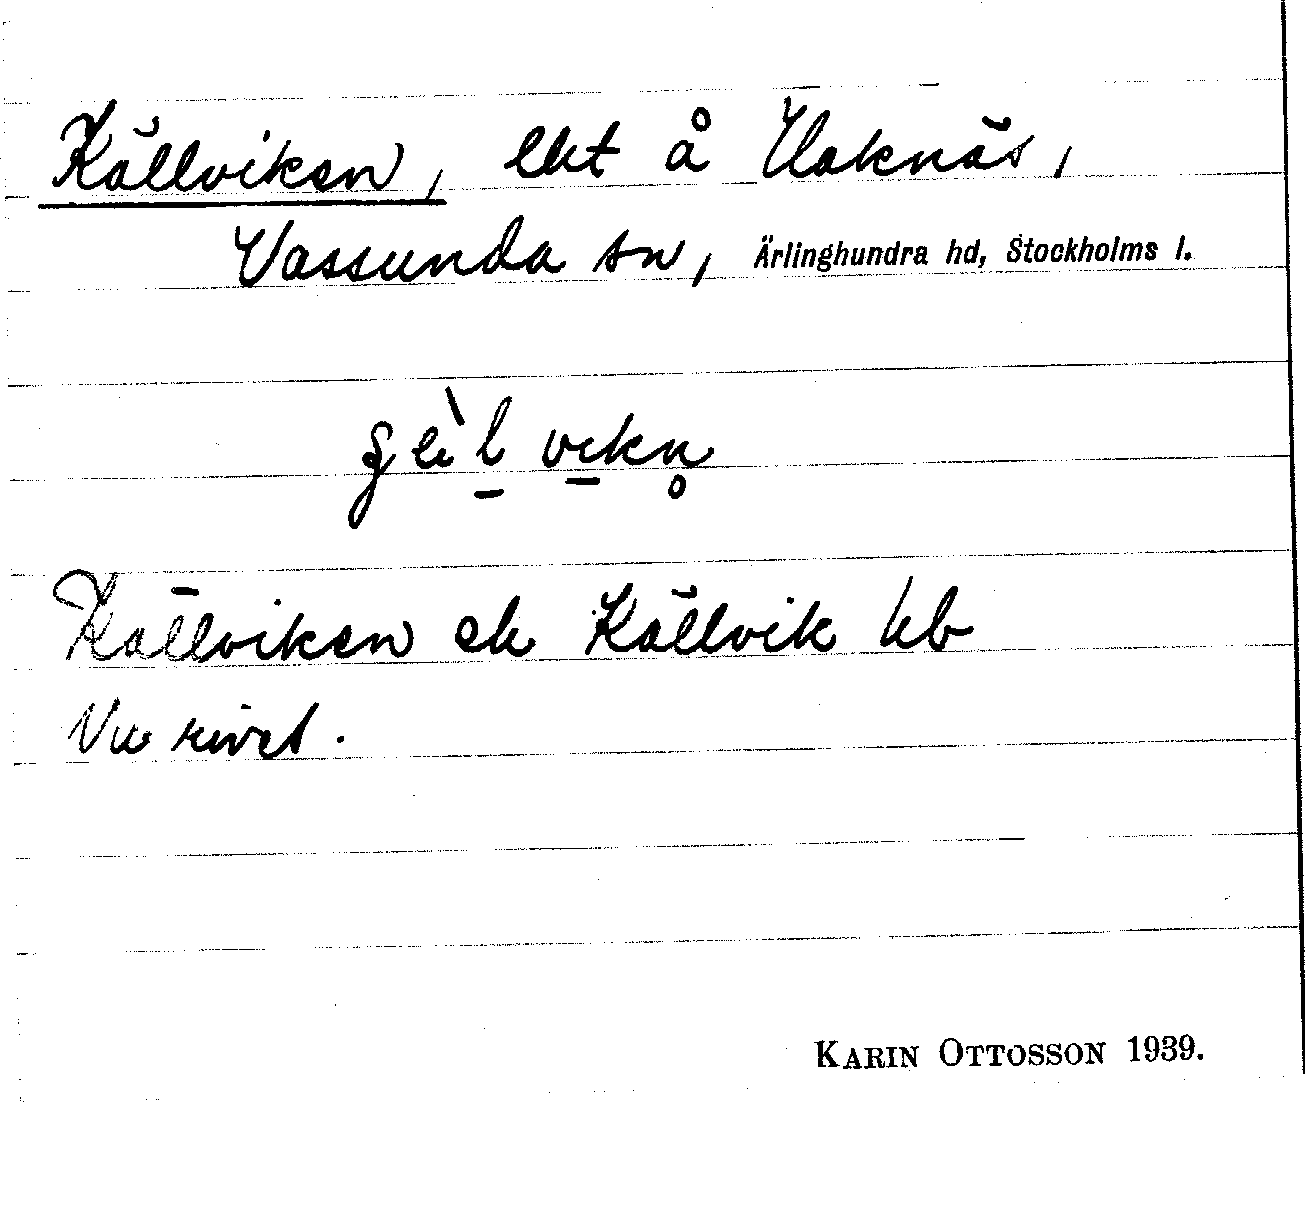 Källviken, lht å Haknäs,
Vassunda sn, Ärlinghundra hd, Stockholms l.
Källviken ek Källvik kb
Nu rivet.
KARIN OTTOSSON 1939.